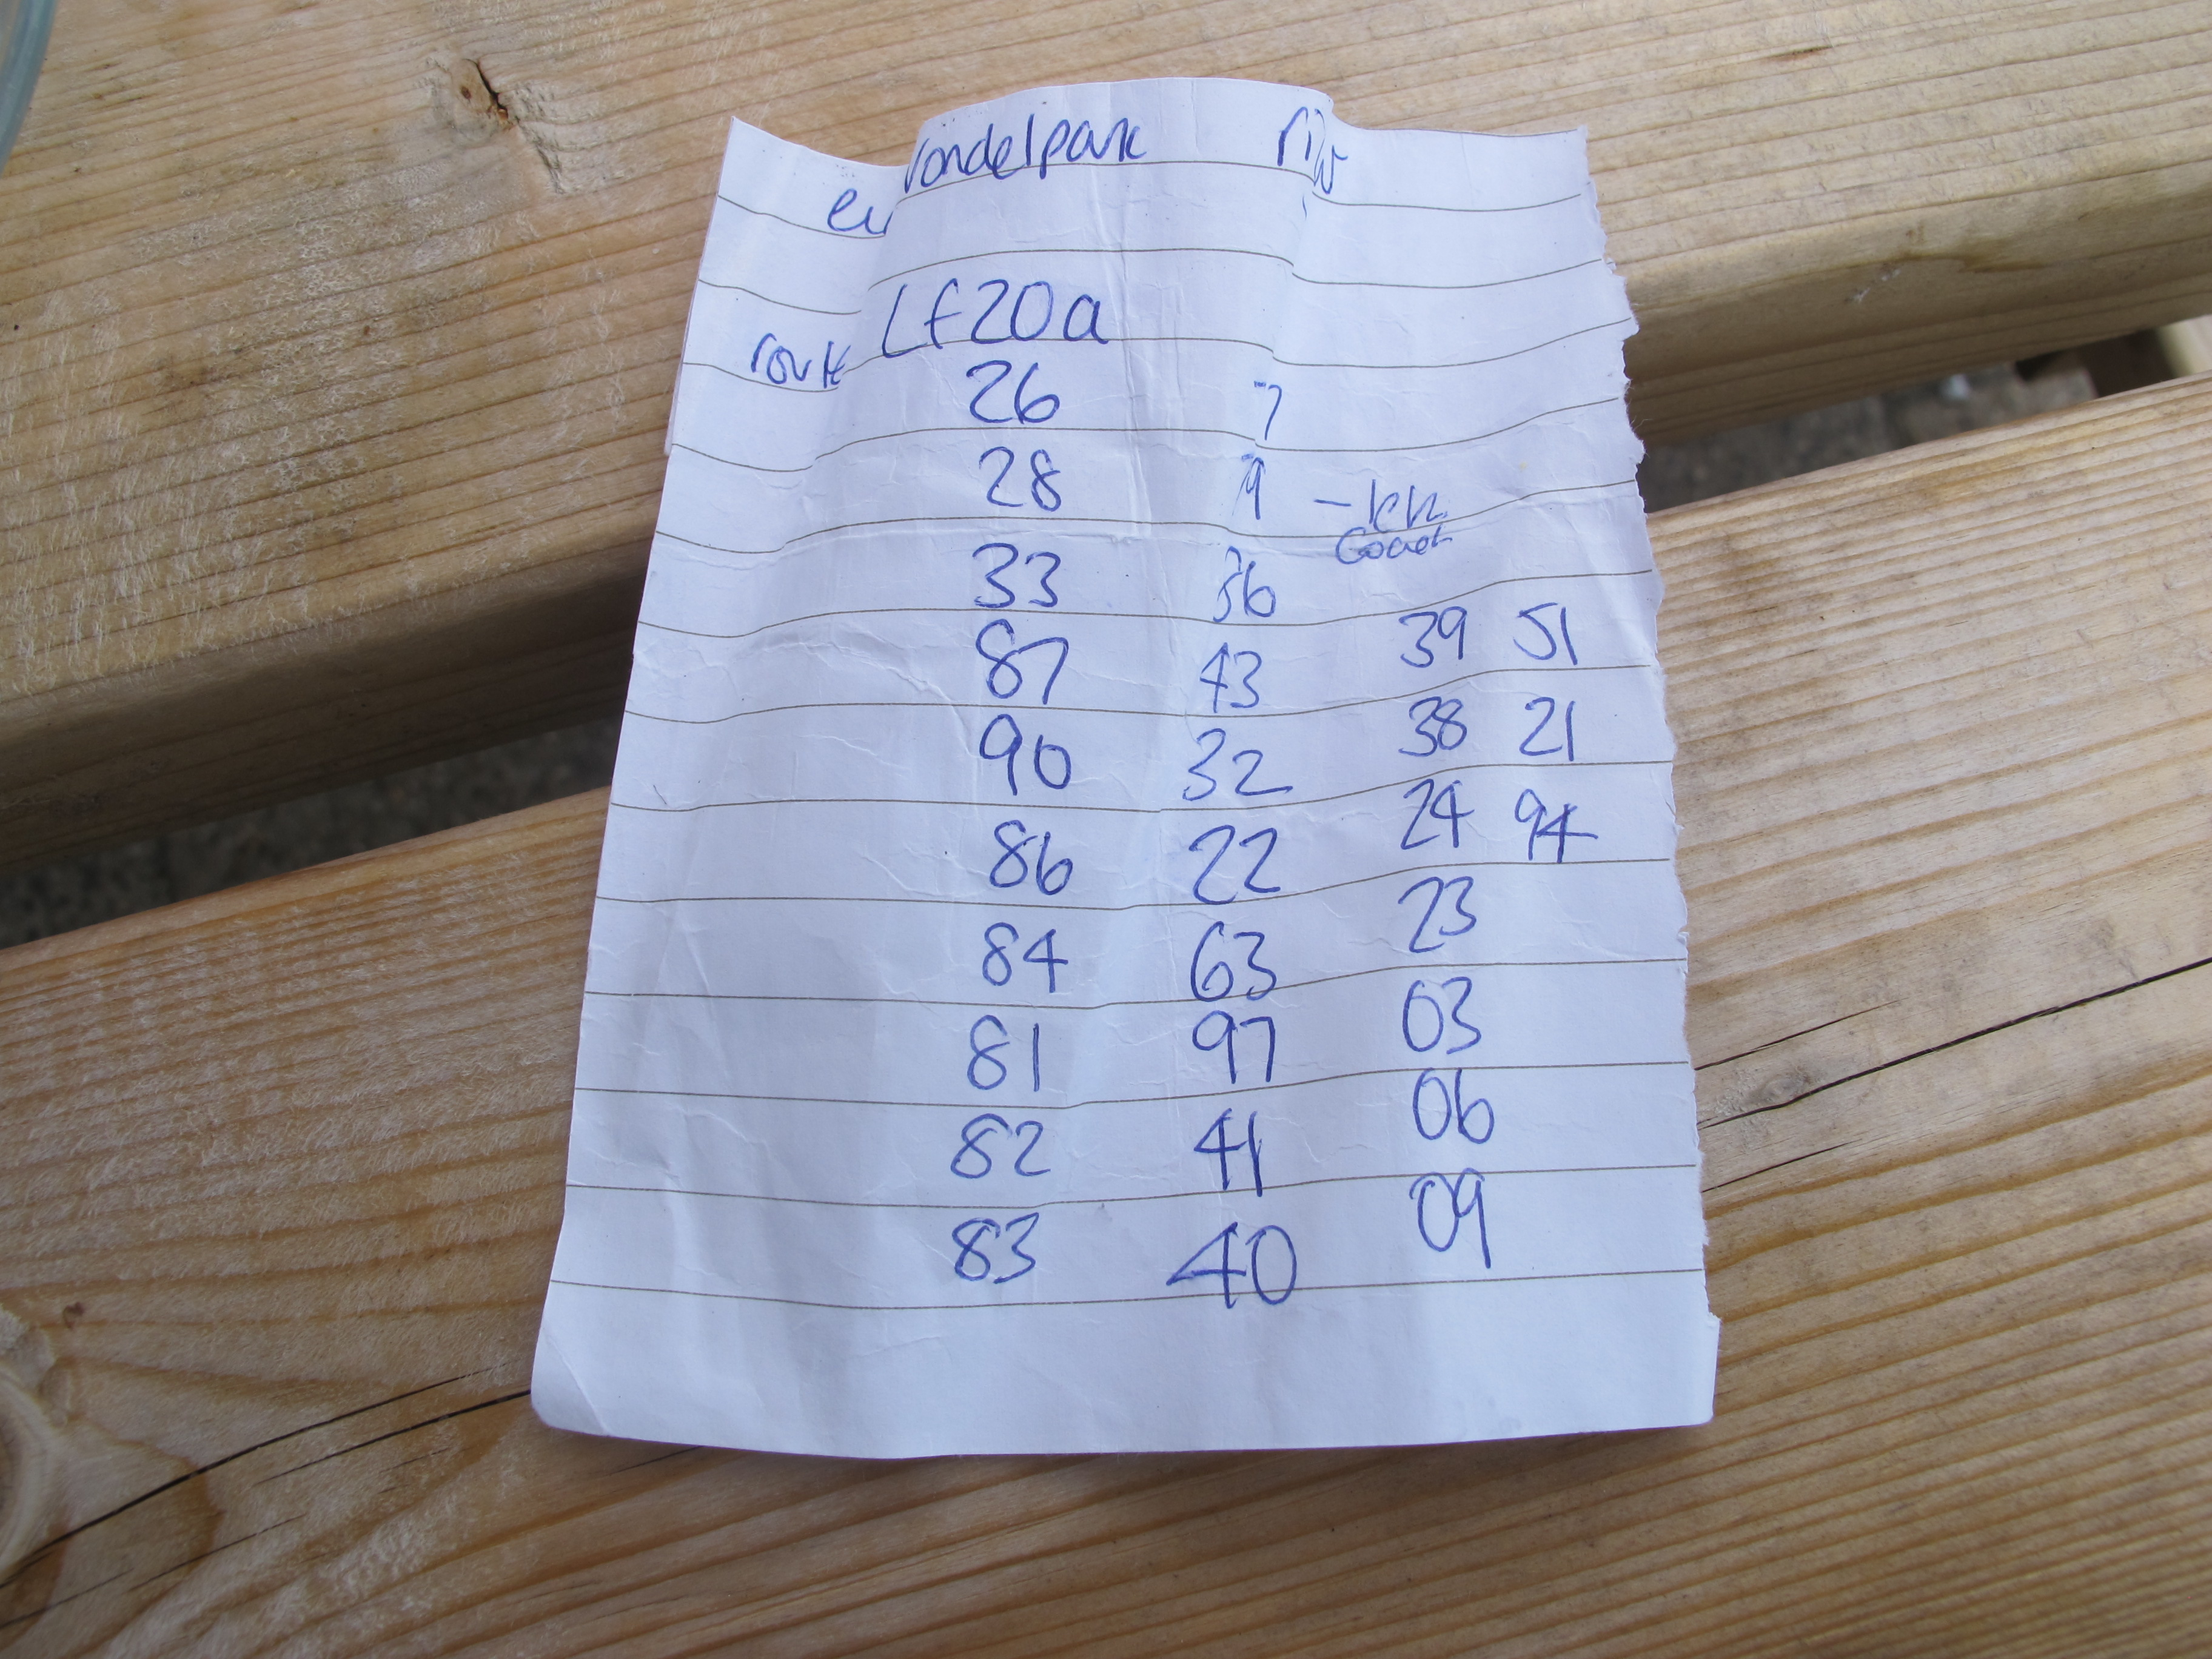 Vondelpark
LF20a
route
26 7
28 9
33 36
87 43 39 51
90 32 38 21
86 22 24 94
84 63 23
81 97 03
82 41 06
83 40 09